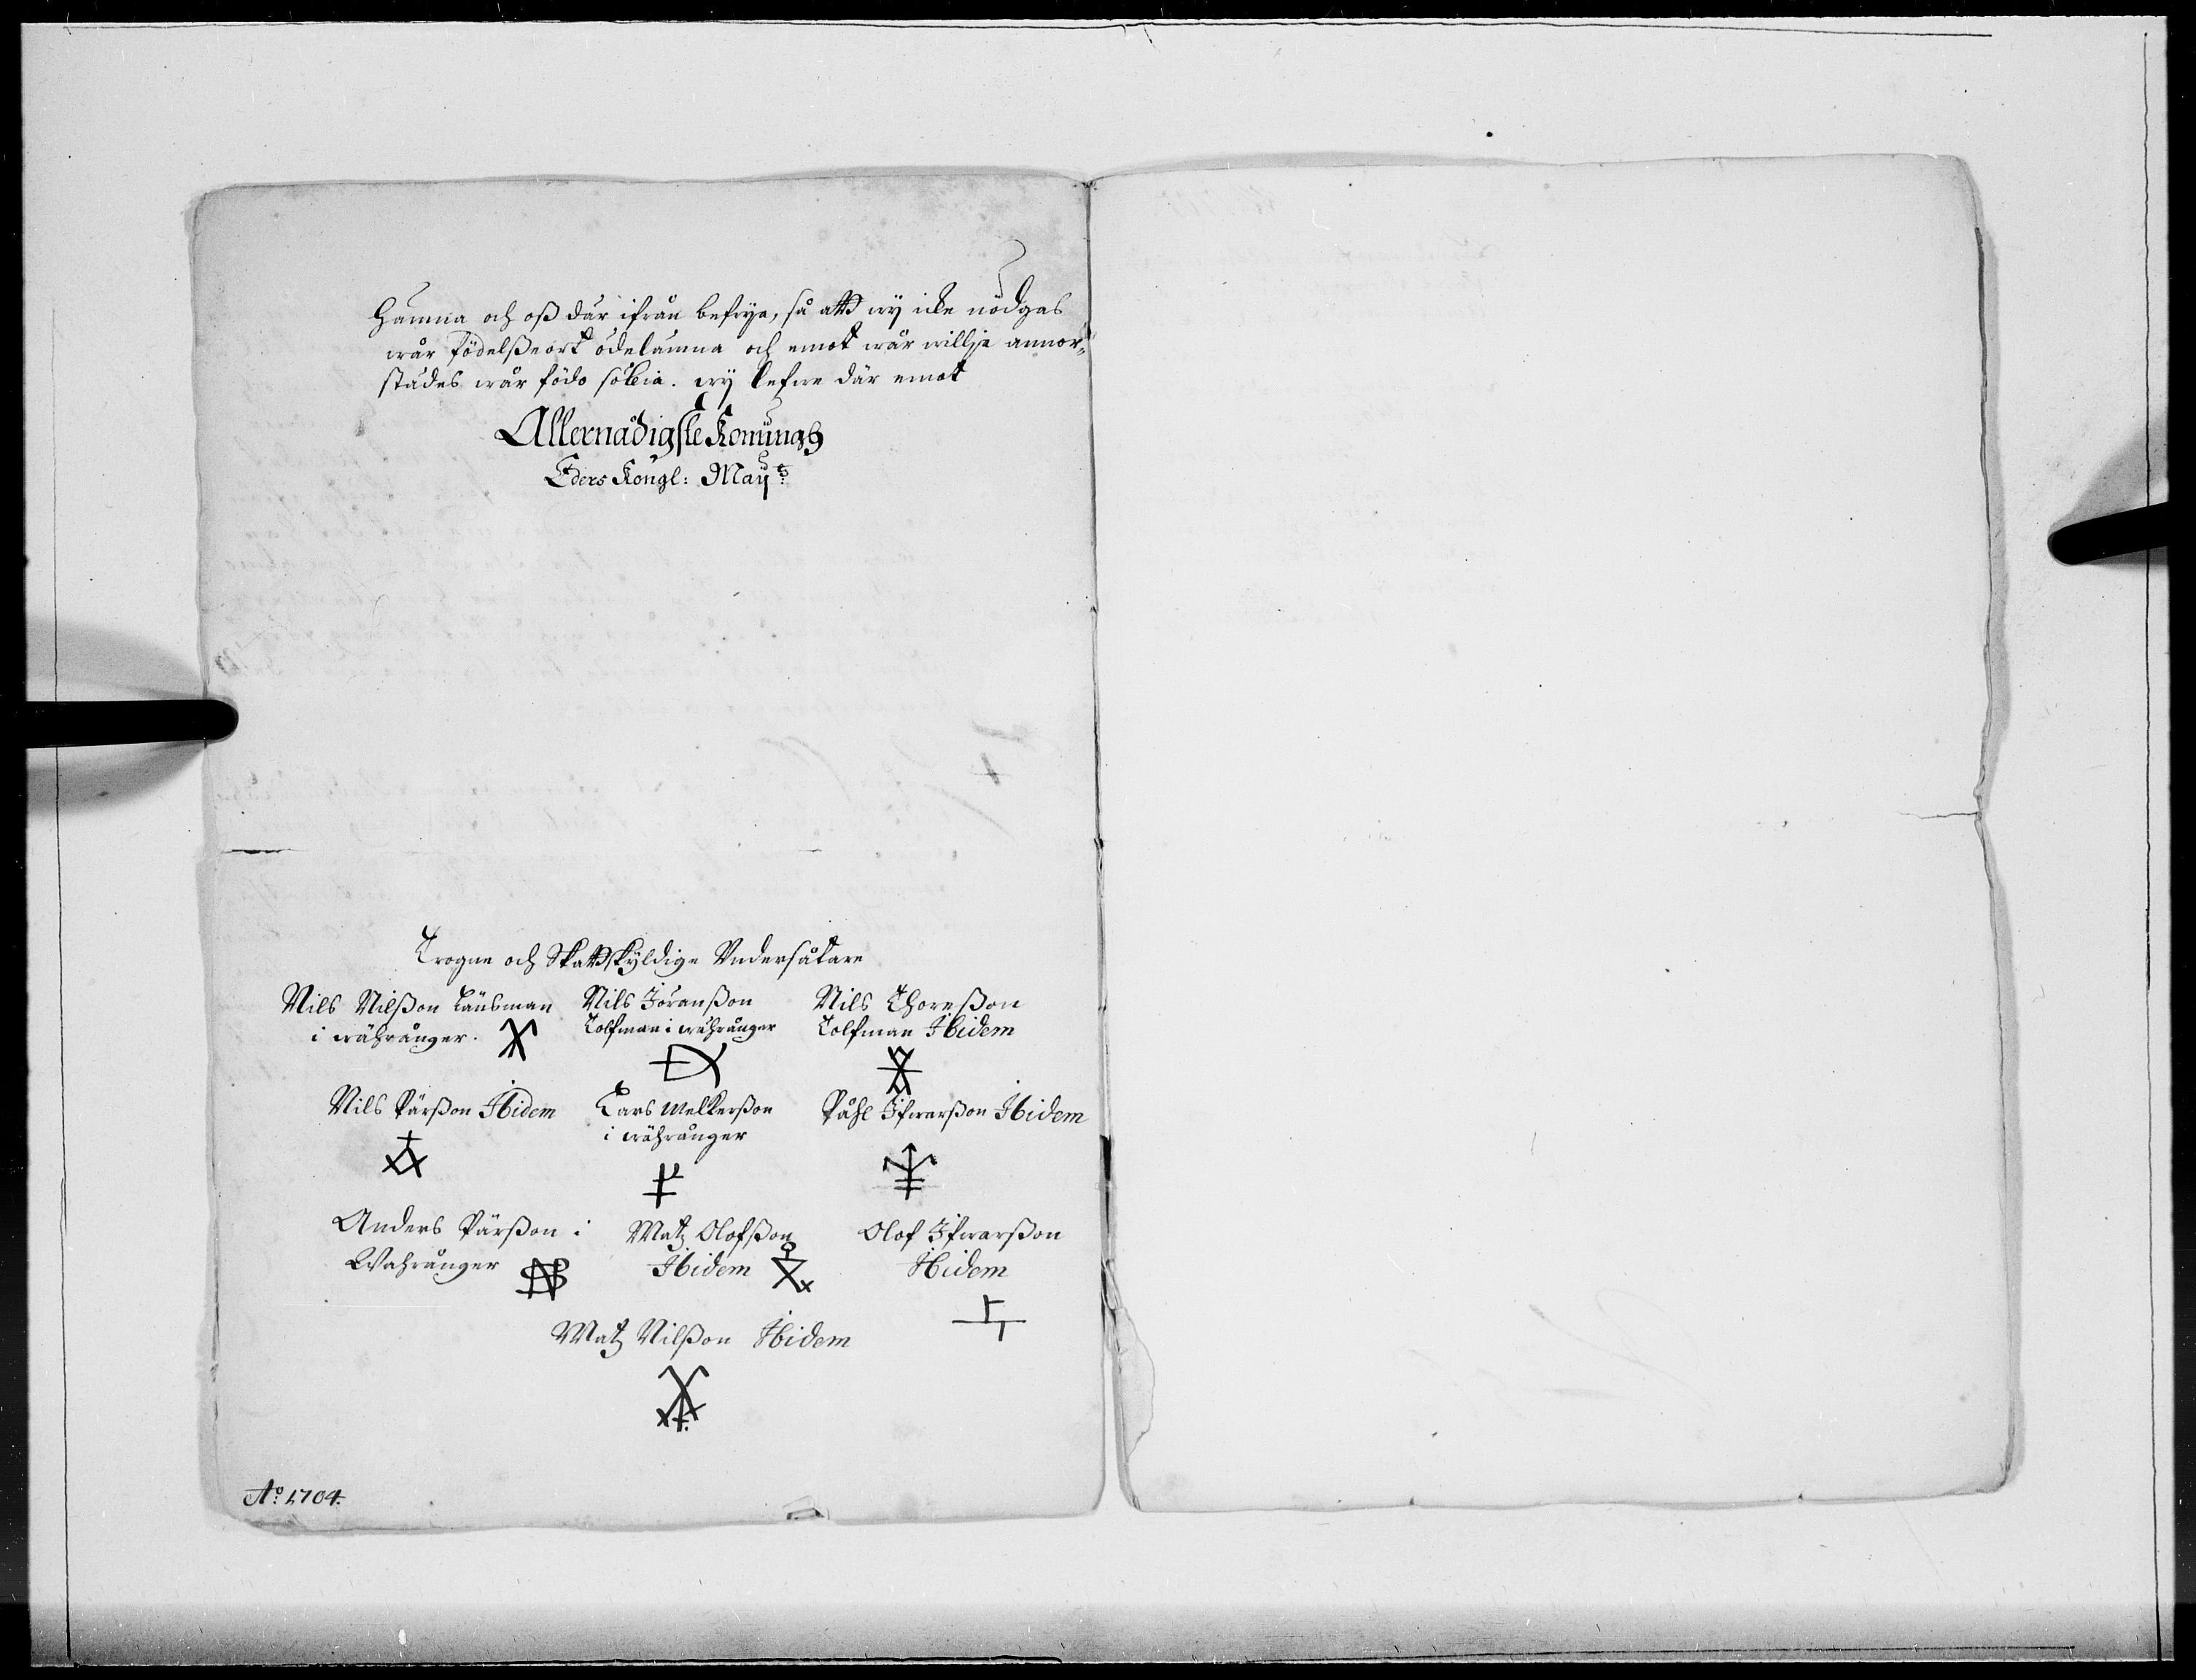 hämma och oß där ifrån befrya, så att wy icke nödgas
wår födelße ort ödelämna och emot wår willja annor„
städes wår födo sökia. wy lefwe där emot
Allernådigste Konungs
Eders Kongl: Maytz
Trogne och Skattskyldige Undersåtare
Nils Nilßon Länsman
i wåhrånger.
Nils Jöranßon
Tolfman i wåhrånger
Nils Thorsßon
Tolfman Ibidem
Nils Pärßon Ibidem
Lars Melkerßon
i wåhrånger
Påhl Ifwarßon Ibidem
Anders Pärßon i
Wahrånger
Matz Olofßon
Ibidem
Olof Ifwarßon
Ibidem
Matz Nilßon Ibidem
Ao: 1704.